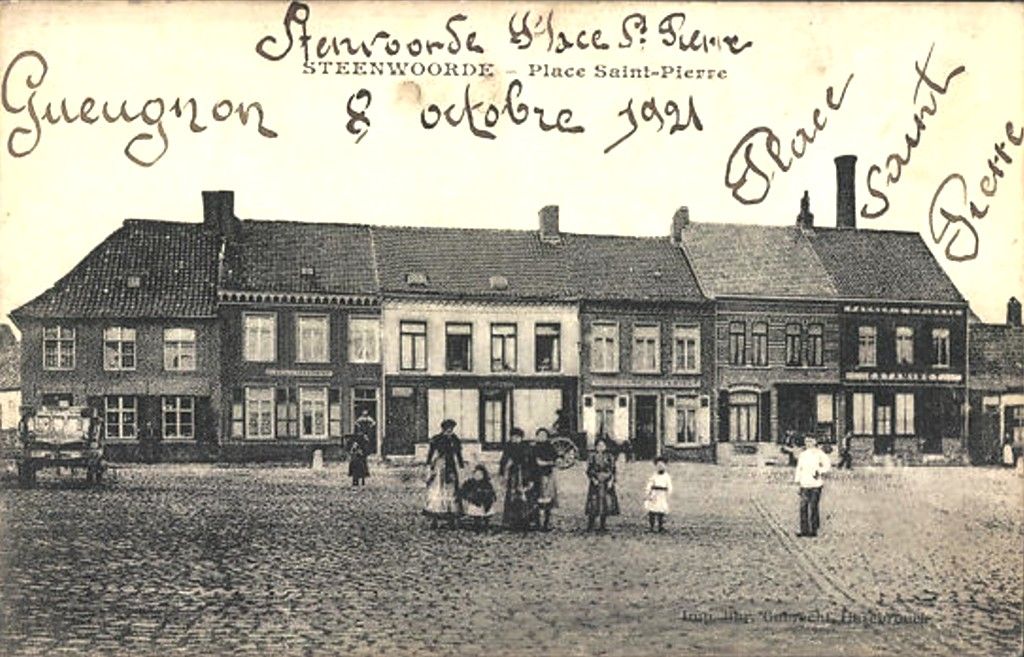 Stenvoorde Place St Pierre
STEENWOORDE - Place Saint-Pierre
Gueugnon 8 octobre 1921
Place
Saint
Pierre
Imp. Lith. Hazebrouck